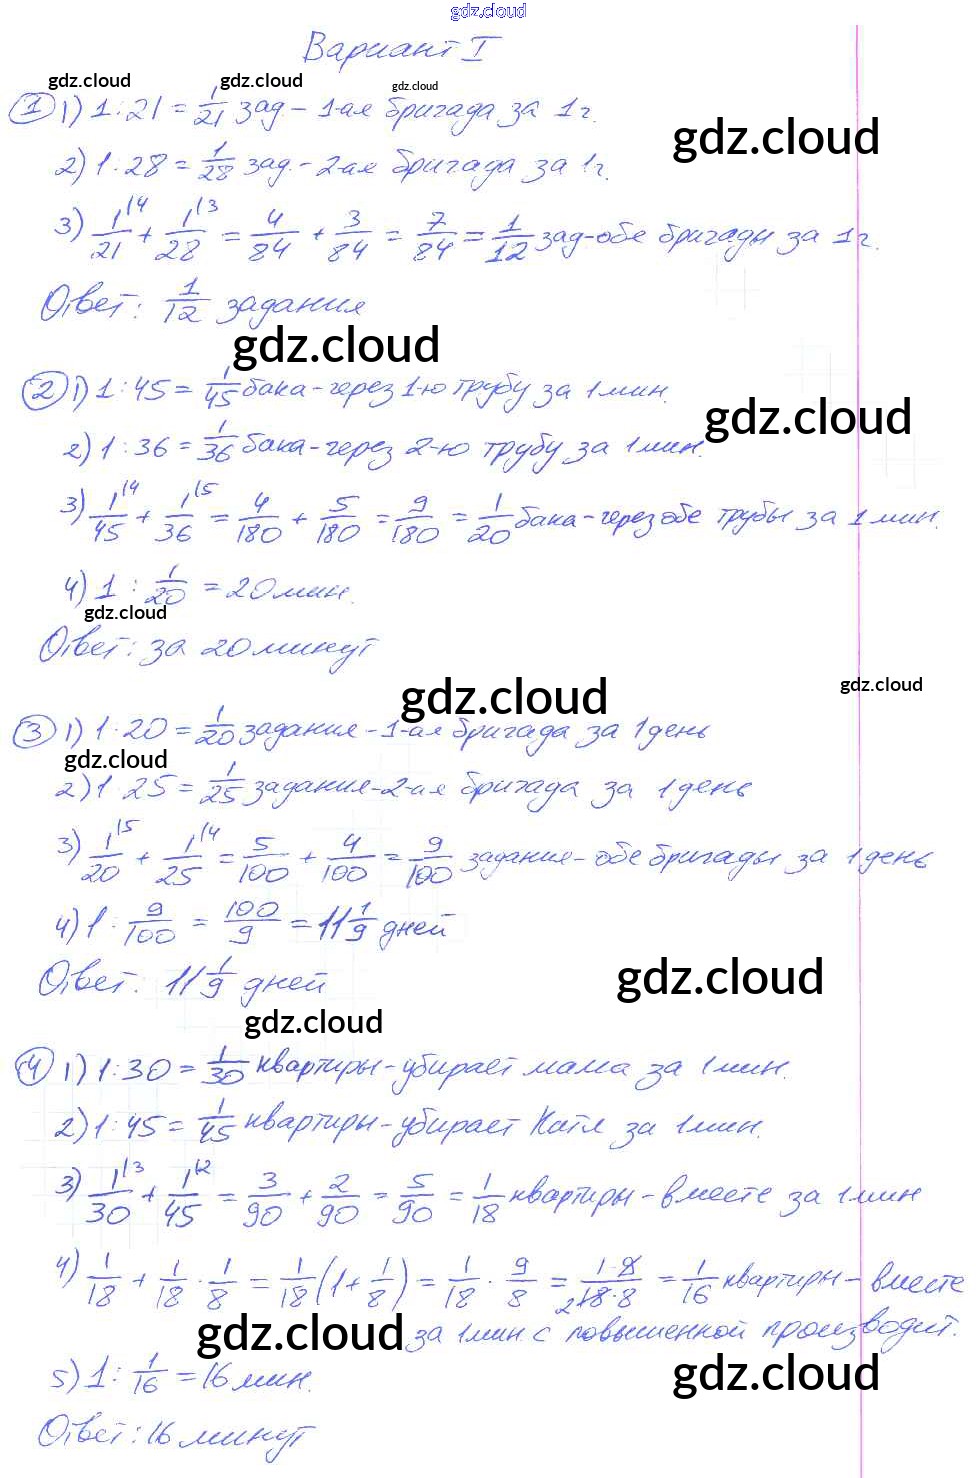 gdz.cloud
Вариант I
gdz.cloud gdz.cloud gdz.cloud
① 1) 1:21 = 1/21 зад. - 1-ая бригада за 1г.
gdz.cloud
2) 1:28 = 1/28 зад. - 2-ая бригада за 1г.
3) 1/21 \4 + 1/28 \3 = 4/84 + 3/84 = 7/84 = 1/12 зад-обе бригады за 1г.
Ответ: 1/12 задания
gdz.cloud
② 1) 1:45 = 1/45 бака - через 1-ю трубу за 1 мин.
gdz.cloud
2) 1:36 = 1/36 бака - через 2-ю трубу за 1 мин.
3) 1/45 \4 + 1/36 \5 = 4/180 + 5/180 = 9/180 = 1/20 бака - через обе трубы за 1 мин.
4) 1 : 1/20 = 20 мин.
gdz.cloud
Ответ: за 20 минут
gdz.cloud gdz.cloud
③ 1) 1:20 = 1/20 задания - 1-ая бригада за 1 день
gdz.cloud
2) 1:25 = 1/25 задания - 2-ая бригада за 1 день
3) 1/20 \5 + 1/25 \4 = 5/100 + 4/100 = 9/100 задания - обе бригады за 1 день
4) 1 : 9/100 = 100/9 = 11 1/9 дней
Ответ: 11 1/9 дней
gdz.cloud
gdz.cloud
④ 1) 1:30 = 1/30 квартиры - убирает мама за 1 мин.
2) 1:45 = 1/45 квартиры - убирает Катя за 1 мин.
3) 1/30 \3 + 1/45 \2 = 3/90 + 2/90 = 5/90 = 1/18 квартиры - вместе за 1 мин
4) 1/18 + 1/18 · 1/8 = 1/18 (1 + 1/8) = 1/18 · 9/8 = 1·9/2 18·8 = 1/16 квартиры - вместе
gdz.cloud за 1 мин с повышенной производит.
5) 1 : 1/16 = 16 мин.
gdz.cloud
Ответ: 16 минут